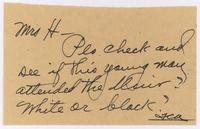 Mrs H—
Pls check and
see if this young man
attended the Univ?
White or black?